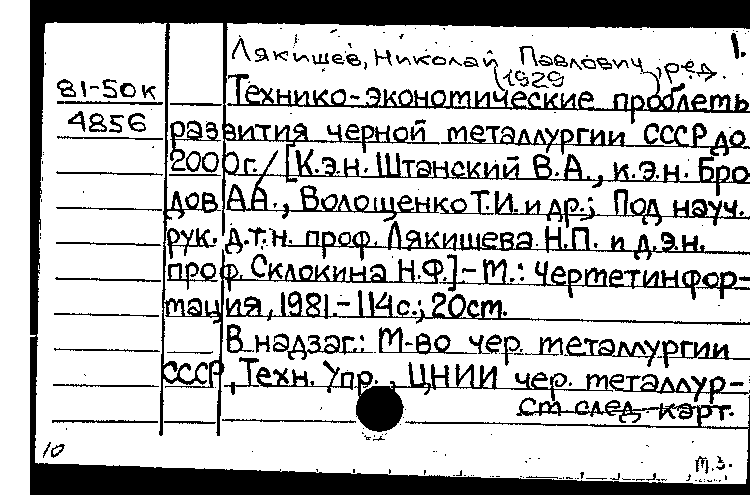 1.
Лякишев, Николай Павлович, ред.
(1929 )
81-50к Технико-экономические проблемы
4856 развития черной металлургии СССР до
2000г./[К.э.н. Штанский В.А., к.э.н. Бро
дов А.А., Волощенко Т.И. и др.; Под науч.
рук. д.т.н. проф. Лякишева Н.П. и д.э.н.
проф. Склокина Н.Ф.]-М.: Черметинфор-
мация, 1981.-114с.; 20см.
В надзаг.: М-во чер. металлургии
СССР, Техн. Упр., ЦНИИ чер. металлур-
См след. карт.
10 м.з.